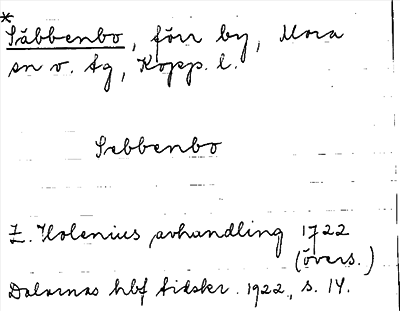 *
Säbbenbo, förr by, Mora
sn v. tg, Kopp. l.
Sebbenbo
E. Holenius avhandling 1722
(övers.)
Dalarnas hbf tidskr. 1922, s. 14.